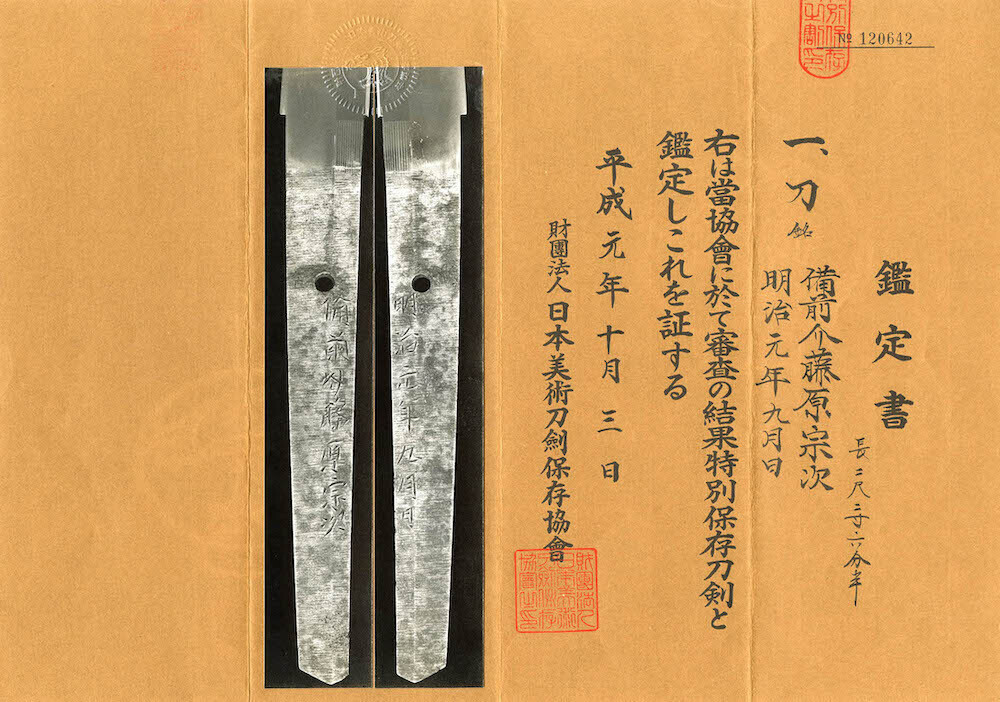 № 120642
鑑定書
一、刀 銘 備前介藤原宗次
明治元年九月日
長二尺三寸六分半
右は當協會に於て審査の結果特別保存刀剣と
鑑定しこれを証する
平成元年十月三日
財團法人日本美術刀劍保存協會
明治元年九月日
備前介藤原宗次